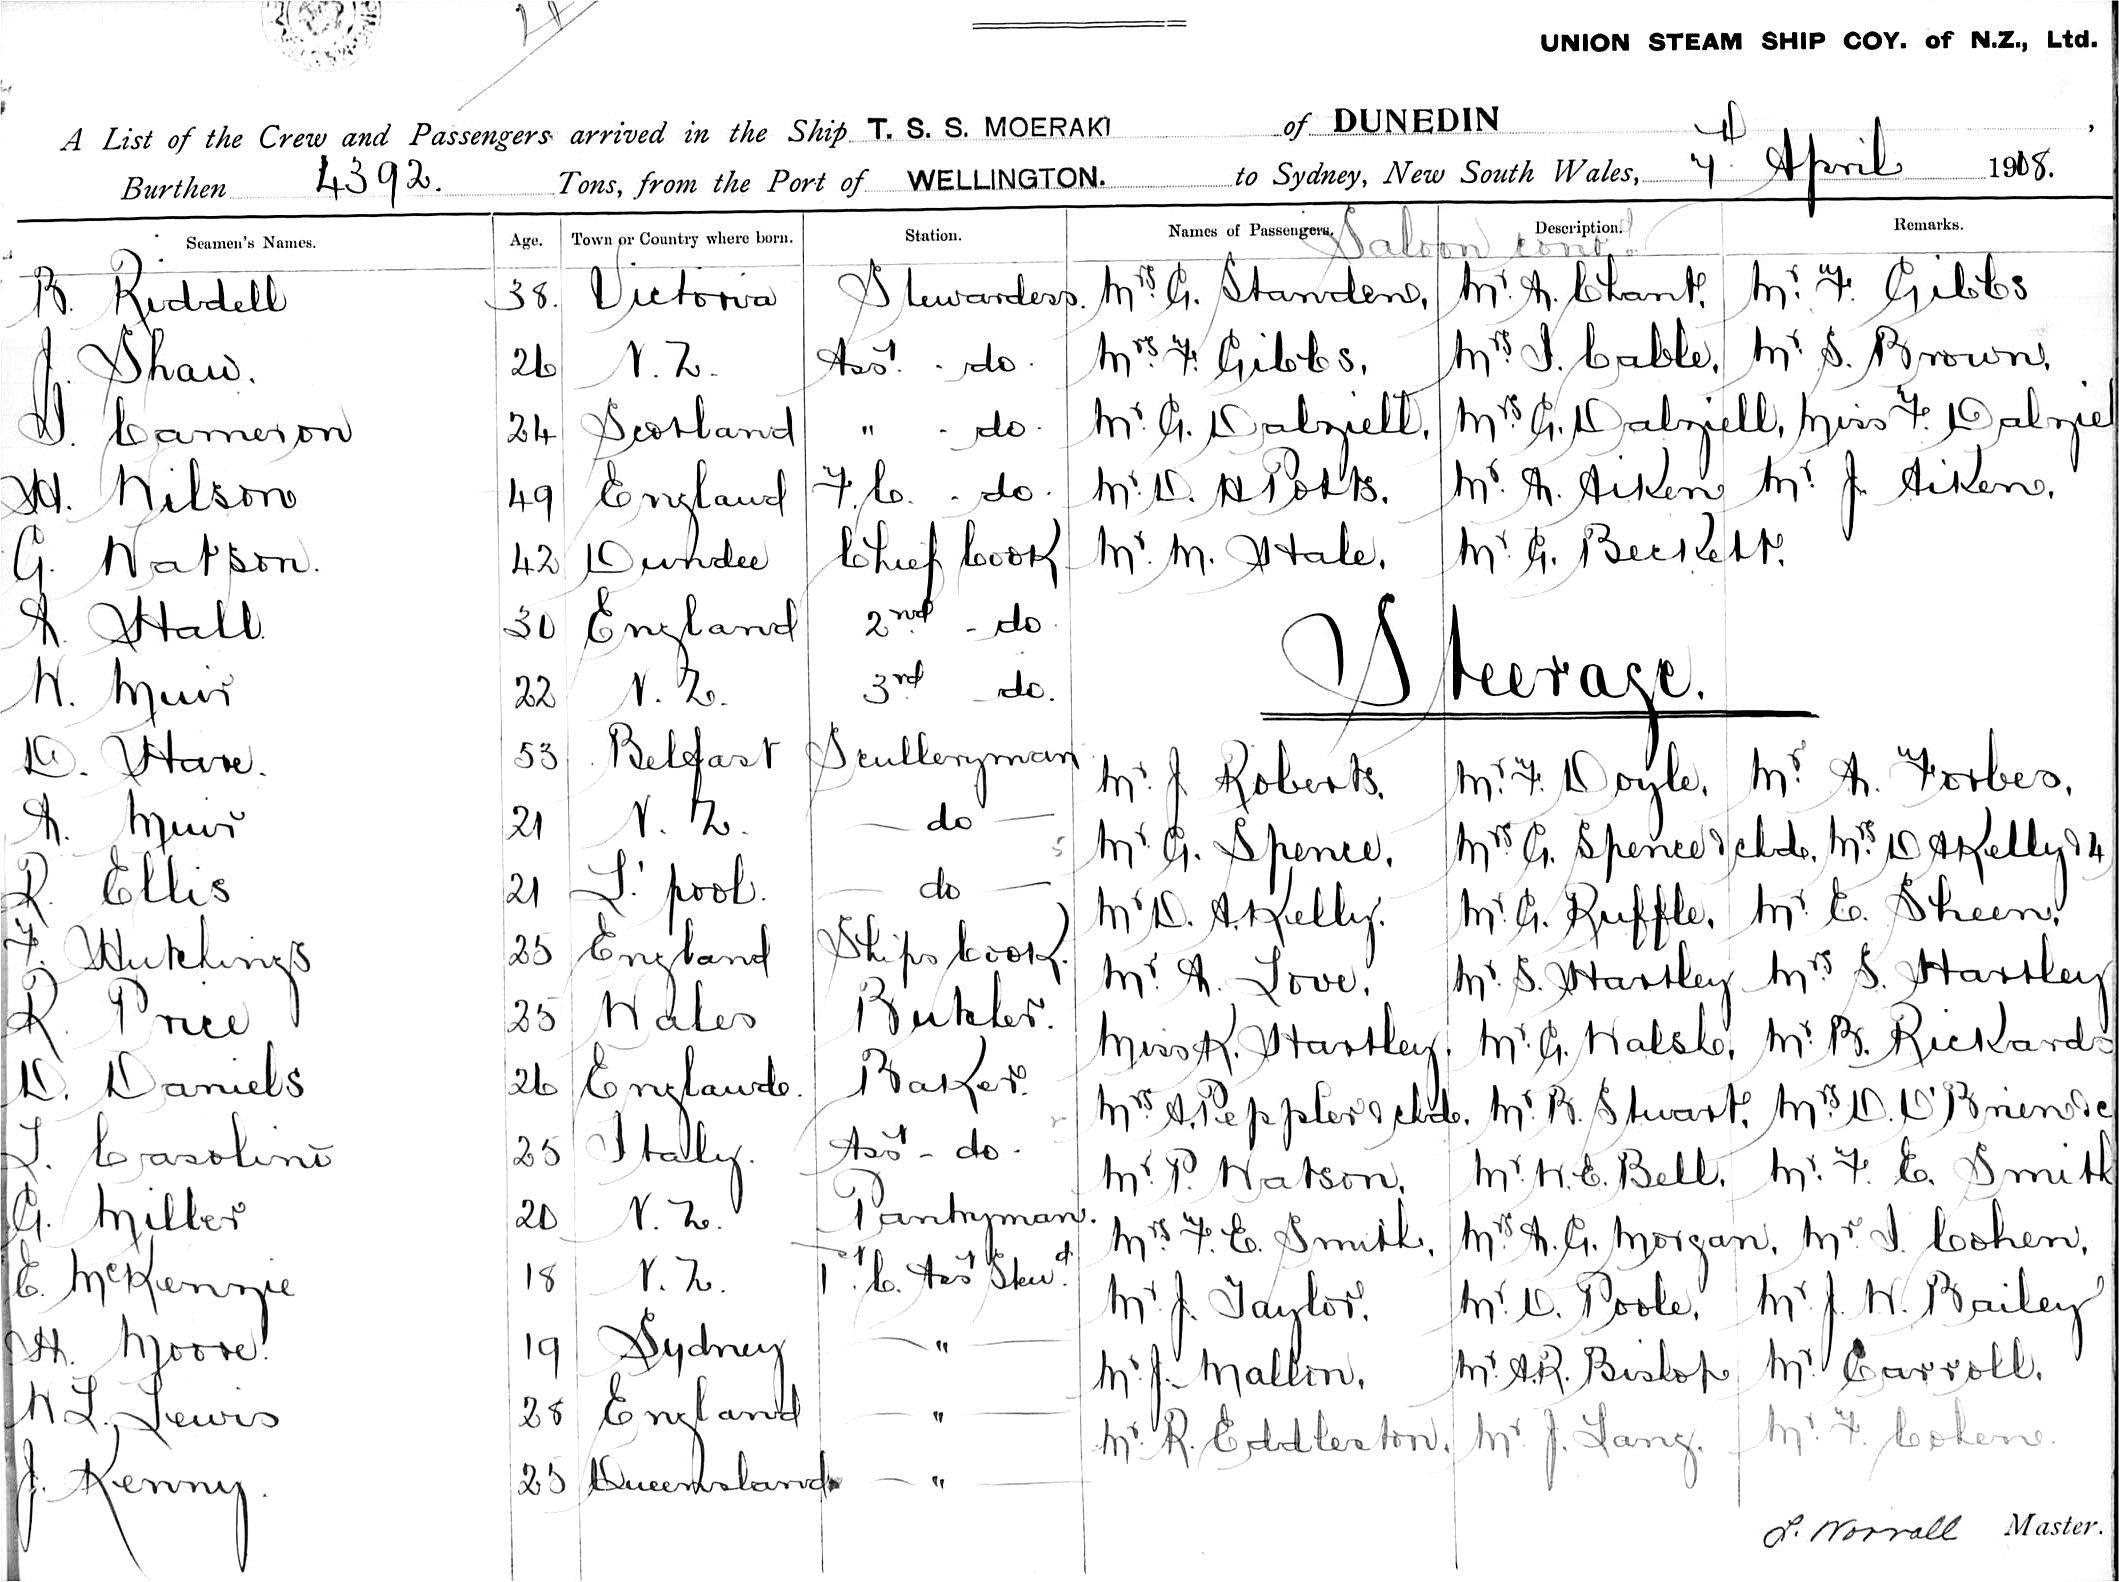 UNION STEAM SHIP COY. of N.Z., Ltd.
A List of the Crew and Passengers arrived in the Ship T. S. S. MOERAKI of DUNEDIN,
Burthen 4392. Tons, from the Port of WELLINGTON. to Sydney, New South Wales, 7th April 1908.
Seamen's Names. Age. Town or Country where born. Station. Names of Passengers. Description. Remarks.
Saloon cont.
B. Riddell 38. Victoria Stewardess. Mrs. G. Standen, Mr. A. Chant, Mr. F. Gibbs
J. Shaw. 26 N. Z. Asst. - do. Mrs. F. Gibbs, Mrs. I. Cable, Mr. S. Brown,
I. Cameron 24 Scotland " - do. Mr. G. Dalziell, Mrs. G. Dalziell, Miss F. Dalziel
H. Wilson 49 England F. C. - do. Mr. D. A Potts. Mr. A. Aiken Mr. J. Aiken,
G. Watson. 42 Dundee Chief Cook Mr. M. Hale, Mr. G. Beckett.
A. Hall 30 England 2nd - do.
W. Muir 22 N. Z. 3rd do.
Steerage.
D. Hare. 53 Belfast Sculleryman Mr. J. Roberts, Mr. F. Doyle, Mr. A. Forbes,
A. Muir 21 N. Z. — do — Mr. G. Spence, Mrs. G. Spence & chd, Mrs. D A Kelly & 4
R. Ellis 21 L'pool. — do — Mr. D. A. Kelly. Mr. G. Ruffle, Mr. E. Sheen,
F. Hutchings 25 England Ships Cook. Mr. A. Love, Mr. S. Hartley Mrs. S. Hartley
R. Price 25 Wales Butcher. Miss K. Hartley, Mr. G. Walsh, Mr. B. Rickards
D. Daniels 26 England. Baker. Mrs. A. Peppler & chd, Mr. B. Stuart, Mrs. D. O'Brien & c
L. Casolini 25 Italy. Asst - do. Mr. P. Watson, Mr. W. E. Bell, Mr. F. E. Smith
G. Miller 20 N. Z. Pantryman. Mrs. F. E. Smith, Mrs. A. G. Morgan, Mr. I. Cohen,
E. McKenzie 18 N. Z. 1st. C. Asst Stewd. Mr. J. Taylor, Mr. D. Poole, Mr. J. W. Bailey
H. Moore. 19 Sydney — " — Mr. J. Mallon, Mr. A. R. Bishop Mr. Carroll.
W L. Lewis 28 England — " — Mr. R. Eddleston, Mr. J. Lang. Mr. F. Cohen.
J. Kenny. 25 Queensland. — " —
L. Worrall Master.